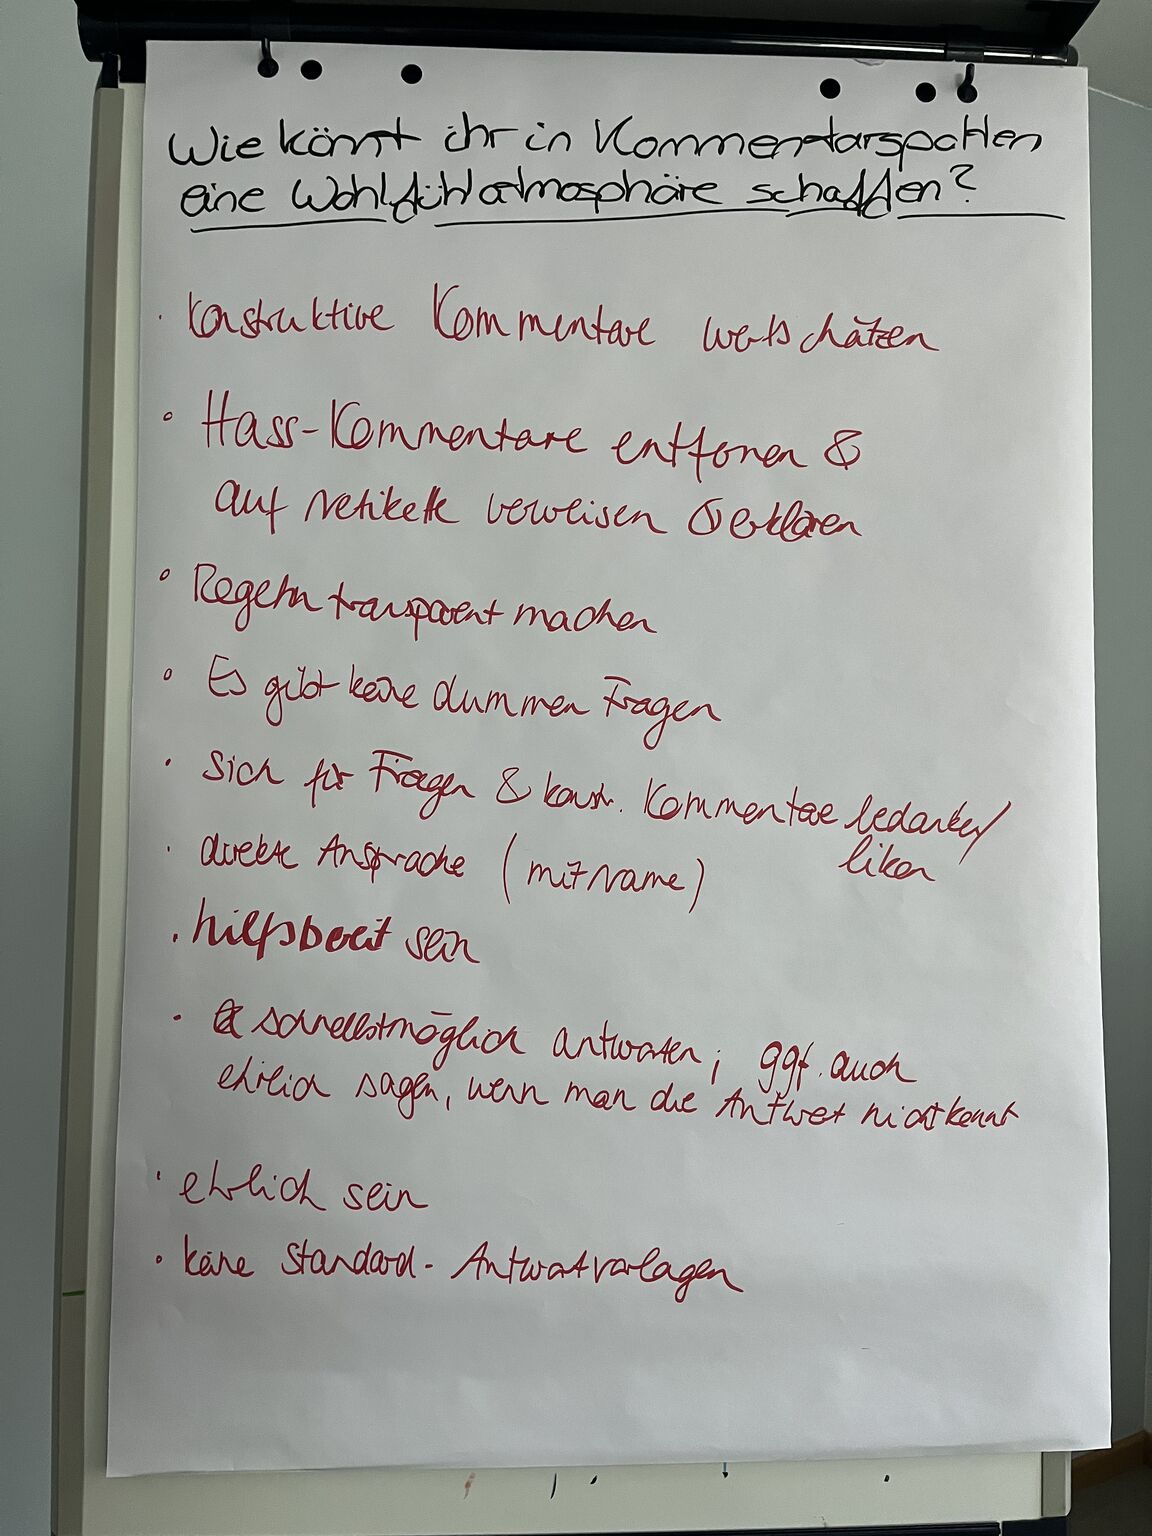 Wie könnt ihr in Kommentarspalten
eine Wohlfühlatmosphäre schaffen?
· konstruktive Kommentare wertschätzen
· Hass-Kommentare entfernen &
auf Netikette verweisen & erklären
· Regeln transparent machen
· Es gibt keine dummen Fragen
· Sich für Fragen & konstr. Kommentare bedanken/
liken
· direkte Ansprache (mit Name)
· hilfsbereit sein
· schnellstmöglich antworten; ggf. auch
ehrlich sagen, wenn man die Antwort nicht kennt
· ehrlich sein
· keine Standard-Antwortvorlagen